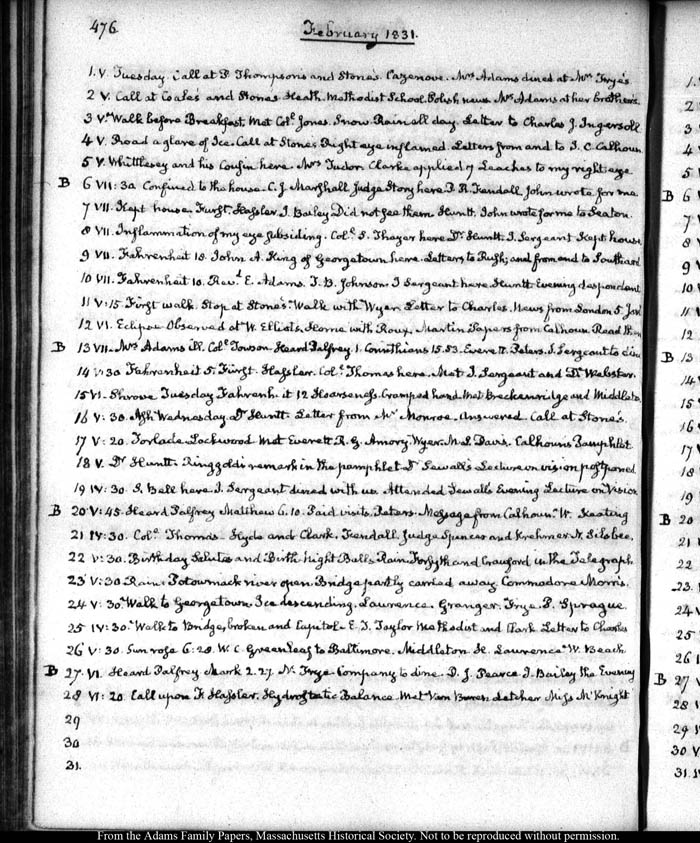 476
February 1831.
1. V. Tuesday. Call at P. Thompson's and Stone's. Cazenove. Mrs Adams dined at Mrs Frye's
2 V. Call at Coale's and Stone's. Heath. Methodist School. Polish news. Mrs Adams at her brother's.
3 V. Walk before Breakfast, met Col. Jones. Snow. Rain all day. Letter to Charles J. Ingersoll
4 V. Road a glare of Ice. Call at Stone's. Right eye inflamed. Letters from and to J. C. Calhoun
5 V. Whittlesey and his Cousin here. Mrs Tudor. Clarke applied 7 Leaches to my right eye
B 6 VII: 30 Confined to the house. C. J. Marshall Judge Story here. J. R. Kendall. John wrote for me
7 VII. Kept house. Furst. Hassler. J. Bailey Did not see them. Huntt. John wrote for me to Seaton.
8 VII. Inflammation of my eye subsiding. Col. S. Thayer here Dr Huntt. J. Sergeant Kept house
9 VII. Fahrenheit 18. John A. King of Georgetown here. Letters to Rush; and from and to Southard
10 VII. Fahrenheit 10. Revd E. Adams. J. B. Johnson. J Sergeant here. Huntt. Evening despondent
11 V: 15. First walk. Stop at Stone's. Walk with Wyer. Letter to Charles. News from London 5. Jany
12 VI. Eclipse Observed at W. Elliot's. Home with Rouz. Martin Papers from Calhoun. Read them
B 13 VII. Mrs Adams ill. Col. Towson. Heard Palfrey. 1. Corinthians 15.53. Everett. Peters. J. Sergeant to dine
14 V: 30 Fahrenheit 5. Furst. Hassler. Col. Thomas here. Met J. Sergeant and D. Webster.
15 VI. Shrove Tuesday Fahrenheit 12 Hoarseness. Cramped hand. Met Breckenridge and Middleton
16 V: 30. Ash Wednesday. Dr Huntt. Letter from Mr Monroe. Answered. Call at Stone's.
17 V: 20. Lockwood Met Everett R. G. Amory. Wyer. M. L. Davis. Calhoun's Pamphlet
18 V. Dr Huntt. Ringgold's remark in the pamphlet. Dr Sewall's Lecture on vision postponed
19 IV: 30. S. Bell here. J. Sergeant dined with us. Attended Sewall's Evening Lecture on Vision
B 20 V: 45. Heard Palfrey Matthew 6. 10. Paid visits. Peters. Message from Calhoun. W. Keating
21 IV: 30. Col. Thomas. Hyde and Clark. Kendall. Judge Spencer and Krehmer. N. Silsbee.
22 V: 30. Birthday Salutes and Birth Night Balls. Rain. Forsyth and Crauford in the Telegraph
23 V: 30 Rain. Potowmack river open. Bridge partly carried away. Commodore Morris.
24 V: 30. Walk to Georgetown. Ice descending. Lawrence. Granger. Frye. P. Sprague.
25 IV: 30. Walk to Bridge, broken and Capitol. E. T. Taylor Methodist and Clark. Letter to Charles
26 V: 30. Sun rose 6: 28. W. C. Greenleaf to Baltimore. Middleton. Lawrence. W. Beach
B 27. VI. Heard Palfrey Mark 2. 27. N. Frye. Company to dine. D. J. Pearce J. Bailey the Evening
28 VI: 20. Call upon F. Hassler. Hydrostatic Balance. Met Van Buren. Letcher Miss McKnight
29
30
31.
1.
2
3
4
5
B 6
7
8
9
10
11
12
B 13
14
15
16
17
18
19
B 20
21
22
23
24
25
26
B 27
28
29
30
31.
From the Adams Family Papers, Massachusetts Historical Society. Not to be reproduced without permission.